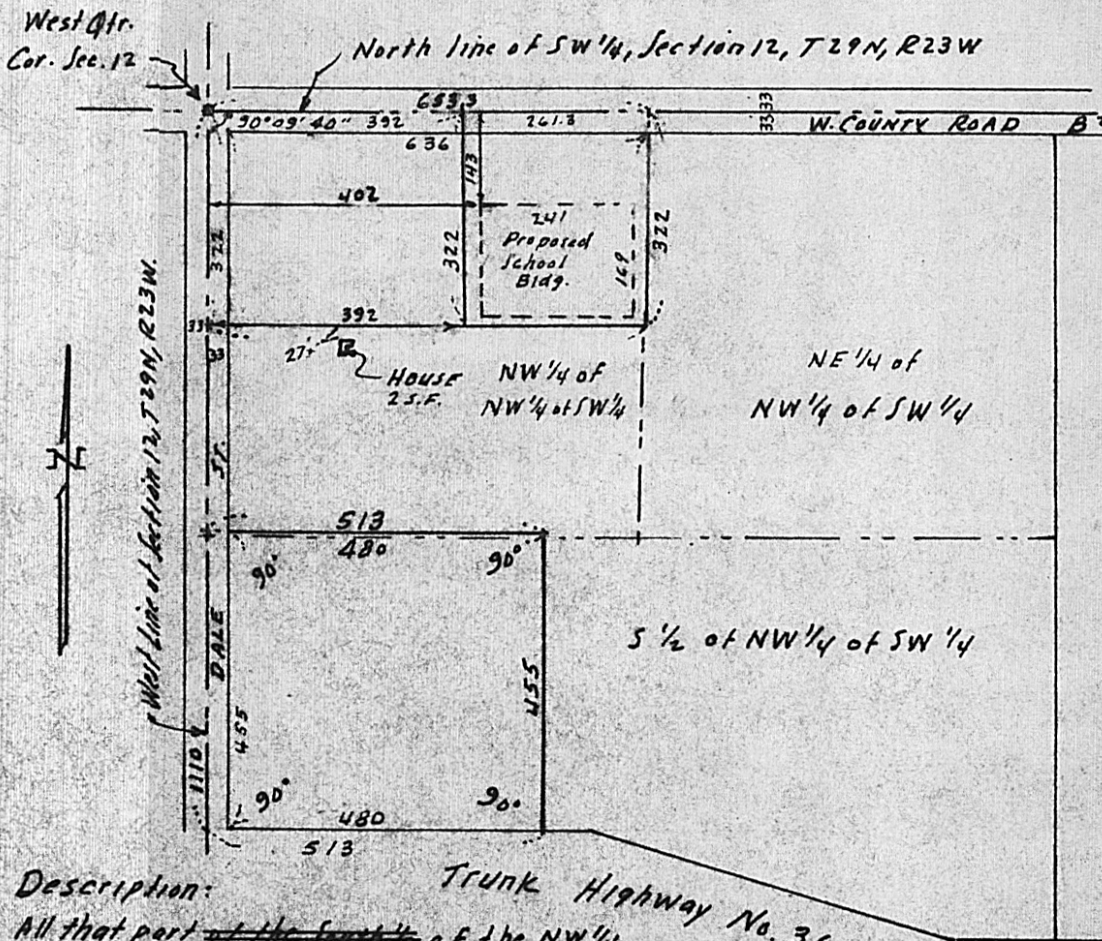 West Qtr.
Cor. Sec. 12
North line of SW 1/4, Section 12, T29N, R23W
653.3
33
33
90°09'40" 392
261.3
636
W. COUNTY ROAD B2
143
402
241
Proposed
School
Bldg.
169
322
322
322
33
33
392
27±
HOUSE
2 S.F.
NW 1/4 of
NW 1/4 of SW 1/4
NE 1/4 of
NW 1/4 of SW 1/4
N
West Line of Section 12, T29N, R23W.
DALE ST.
513
480
90°
90°
S 1/2 of NW 1/4 of SW 1/4
455
455
1110
90°
90°
480
513
Trunk Highway No. 36
Description:
All that part of the South 1/2 of the NW 1/4